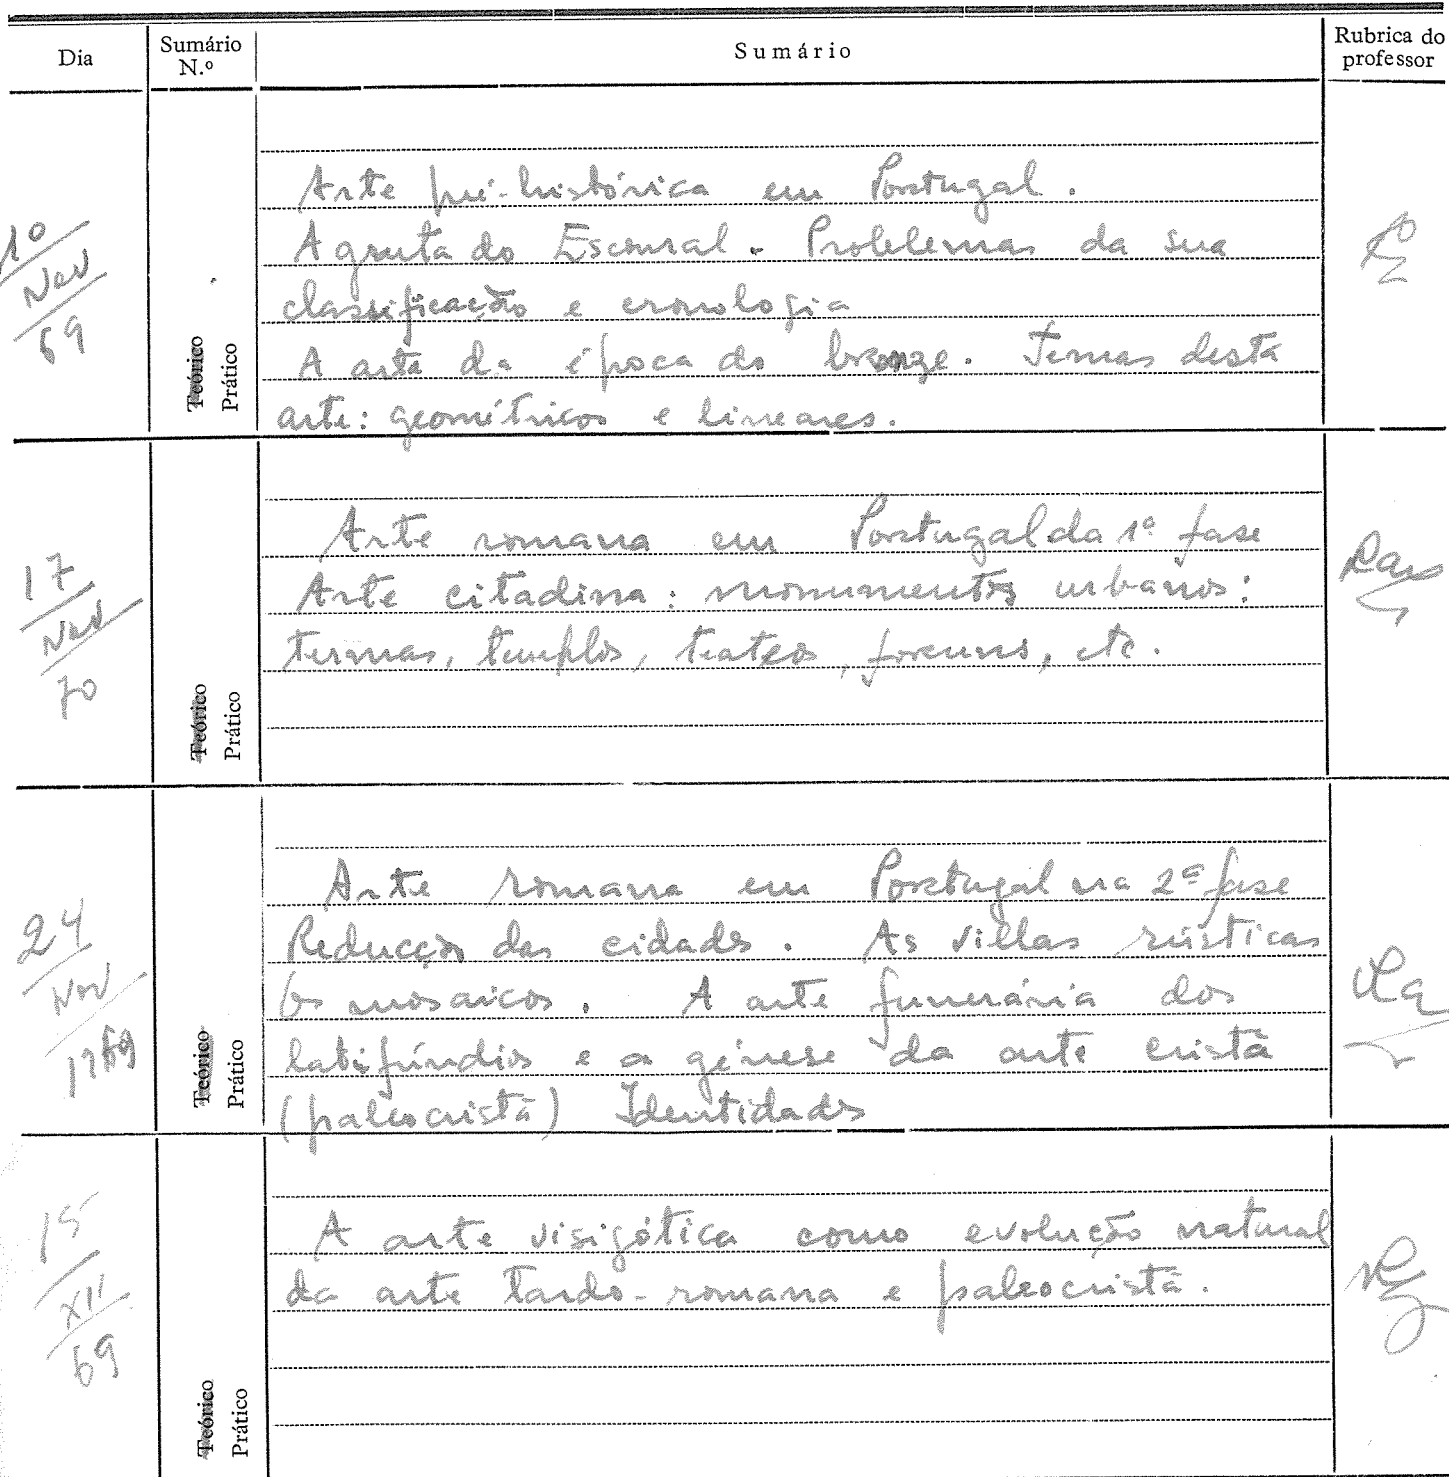 Dia Sumário N.º Sumário Rubrica do professor
10
Nov
69
Teórico
Prático
Arte pré-histórica em Portugal.
A gruta do Escoural. Problemas da sua
classificação e cronologia
A arte da época do bronze. Temas desta
arte: geométricos e lineares.
17
Nov
70
Teórico
Prático
Arte romana em Portugal da 1ª fase
Arte citadina: monumentos urbanos:
termas, templos, teatros, foruns, etc.
24
Nov
1969
Teórico
Prático
Arte romana em Portugal na 2ª fase
Reducção das cidades. As villas rústicas
Os mosaicos. A arte funerária dos
latifúndios e a génese da arte cristã
(paleocristã) Identidades
15
XII
69
Teórico
Prático
A arte visigótica como evolução natural
da arte tardo-romana e paleocristã.